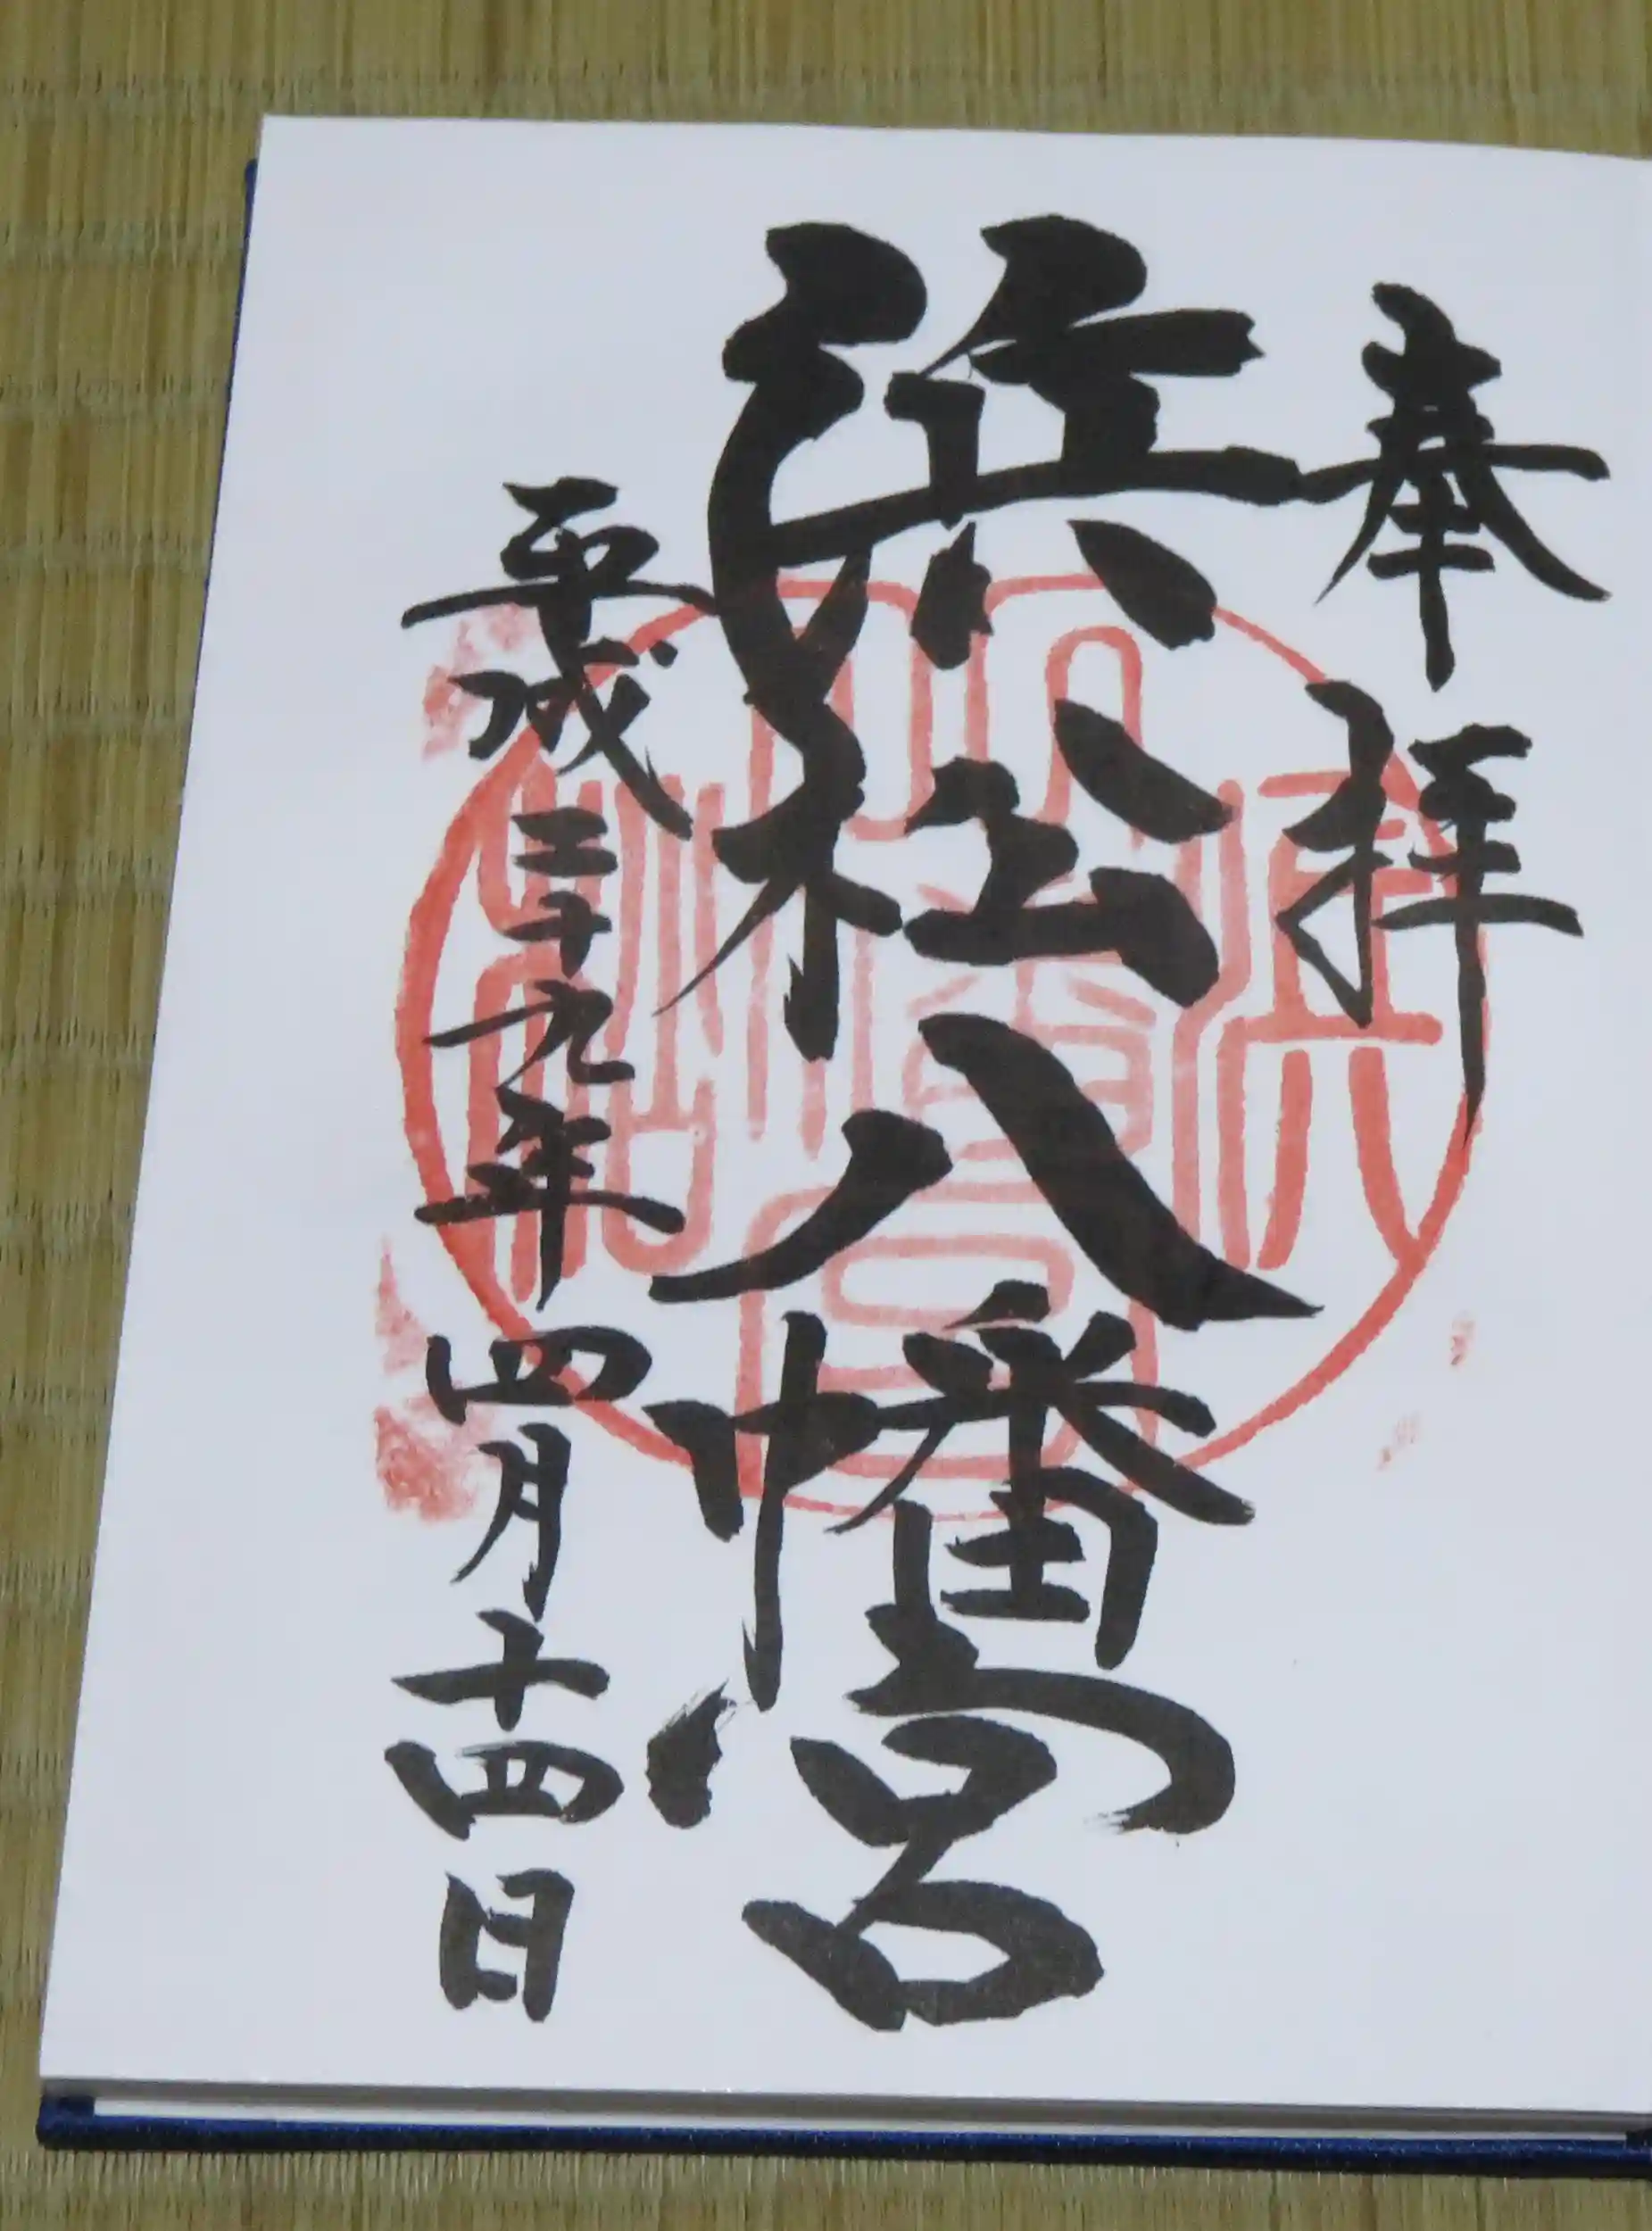 奉拝
浜松八幡宮
平成二十九年四月十四日